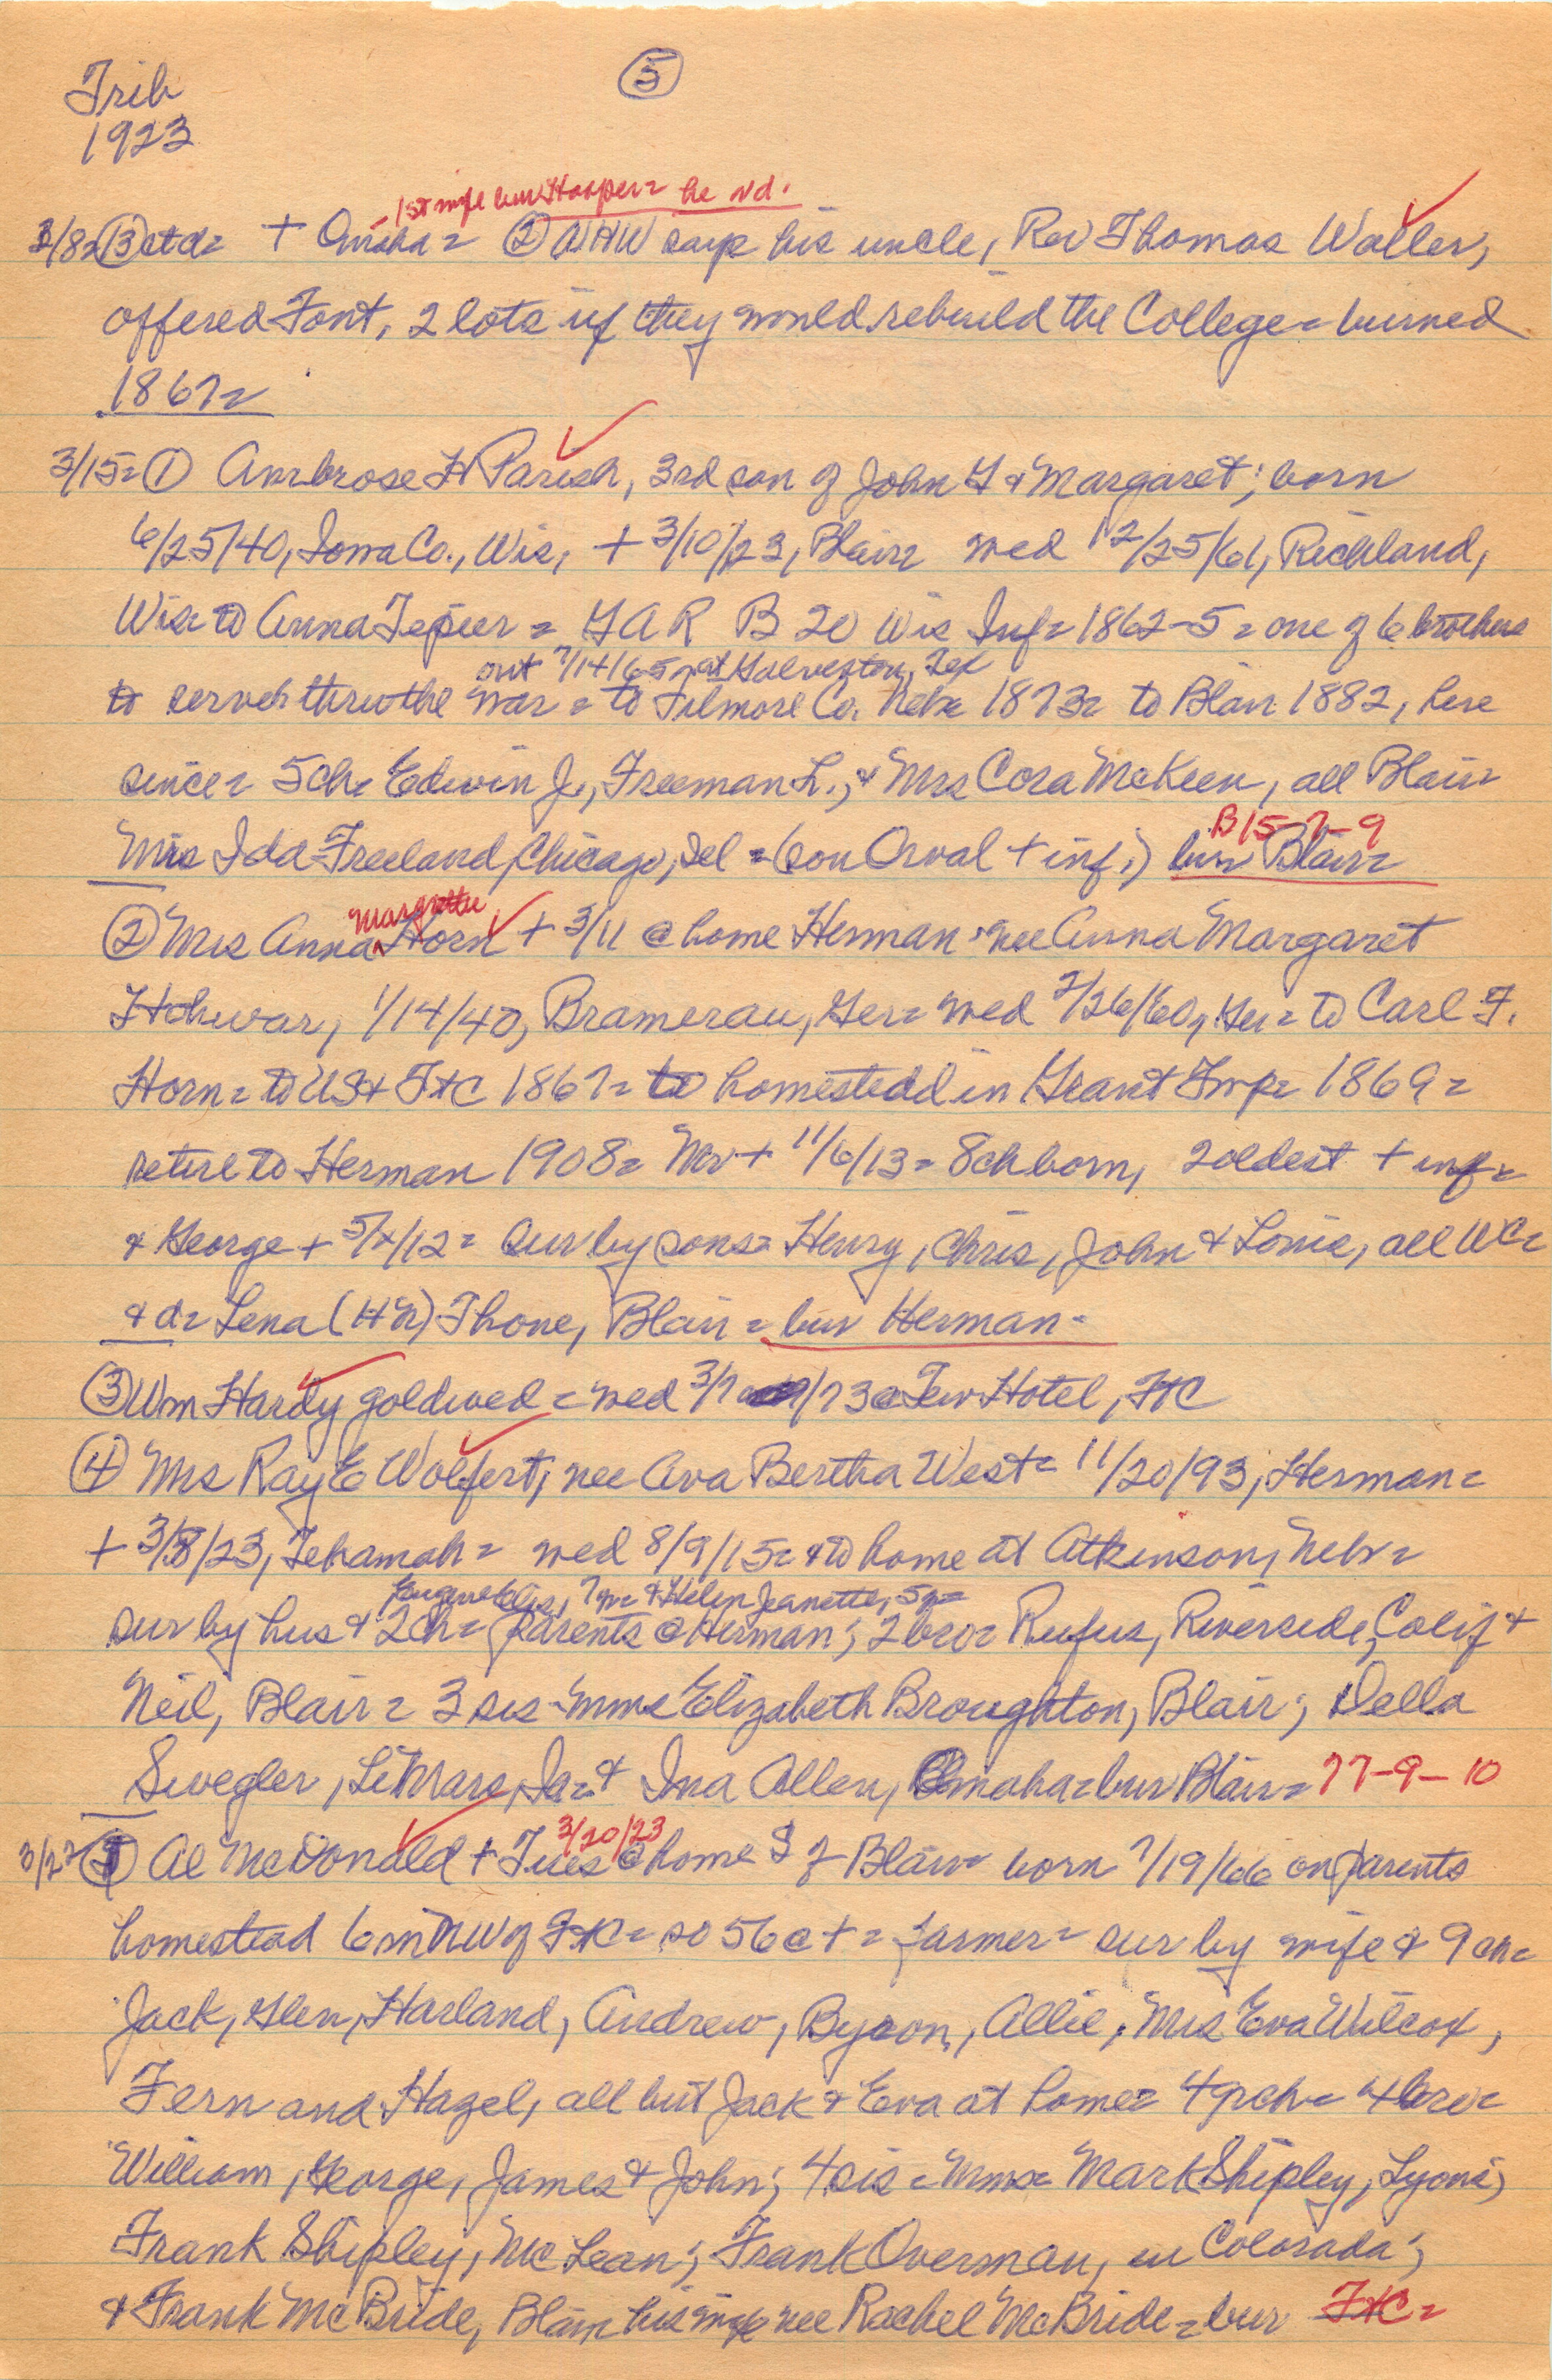 5
Trib
1923
-1st wife bur Hooper = he nd.
3/8= 3 ctd= + Omaha = 2 AHW says his uncle, Rev Thomas Waller,
offered Font, 2 lots if they would rebuild the College = burned
1867=
3/15= 1 Ambrose H Parish, 3rd son of John G & Margaret; born
6/25/40, Iowa Co., Wis, + 3/10/23, Blair= wed 12/25/61, Richland,
Wis= to Anna = GAR B 20 Wis Inf= 1862-5 = one of 6 brothers
out 7/14/65 at Galveston, Tex
to serve thru the war = to Filmore Co. Neb= 1873= to Blair 1882, here
since = 5ch= Edwin J., Freeman L., & Mrs Cora McKeen, all Blair=
B15-7-9
Mrs Ida Freeland, Chicago, Ill = (son Orval + inf.) bur Blair=
Margrette
2 Mrs Anna Horn + 3/11 @ home Herman = nee Anna Margaret
1/14/40, Bramerau, Ger= wed 2/26/60, Ger = to Carl F.
Horn = to US & FtC 1867= to homestead in Grant Twp= 1869=
retire to Herman 1908= Mr + 11/6/13= 8ch born, 2 oldest + inf=
& George + 5/ /12= Sur by sons= Henry, Chris, John & Louie, all WC=
& d= Lena (HN) Thone, Blair = bur Herman-
3 Wm Hardy goldwed = wed 3/7 /73 @ Tew Hotel, FtC
4 Mrs Ray E Wolfert, nee Ava Bertha West= 11/20/93, Herman=
+ 3/8/23, Tekamah= wed 8/9/15= & to home at Atkinson, Nebr=
Eugene Ellis, 7m= & Helen Jeanette, 5m=
sur by hus & 2ch= parents @ Herman; 2 bro= Rufus, Riverside, Calif &
Neil, Blair = 3 sis - Mmes Elizabeth Broughton, Blair; Della
Swegler, LeMars, Ia= & Ina Allen, Omaha= bur Blair= 77-9-10
3/20/23
3/2 Al McDonald + Tues @ home S of Blair= born 7/19/66 on parents
homestead 6m NW of FtC= so 56 @ + = farmer= sur by wife & 9 ch=
Jack, Glen, Harland, Andrew, Byron, Allie, Mrs Eva Wilcox,
Fern and Hazel, all but Jack & Eva at home= 4 gch= 4 bro=
William, George, James & John; 4 sis = Mmes= Mark Shipley, Lyons;
Frank Shipley, McLean; Frank Overman, in Colorado;
& Frank McBride, Blair= his wife nee Rachel McBride= bur FtC=